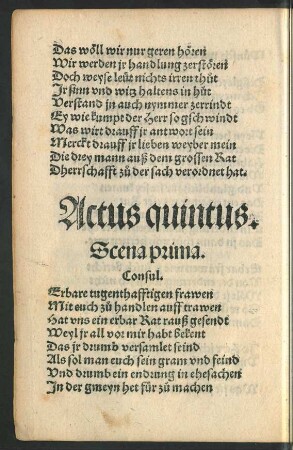 Das wöll wir nur geren hören
Wir werden jr handlung zerstören
Doch weyse leüt nichts irren thůt
Jr sinn vnd witz haltens in hůt
Verstand jn auch nymmer zerrindt
Ey wie kumpt der Herr so gschwindt
Was wirt drauff jr antwort sein
Merckt drauff jr lieben weyber mein
Die drey mann auß dem grossen Rat
Dherrschafft zů der sach verordnet hat.
Actus quintus.
Scena prima.
Consul.
Erbare tugenthafftigen frawen
Mit euch zů handlen auff trawen
Hat vns ein erbar Rat rauß gesendt
Weyl jr all vor mir habt bekent
Das jr drumb versamlet seind
Als sol man euch sein gram vnd feind
Vnd drumb ein endrung in ehesachen
Jn der gmeyn het für zů machen